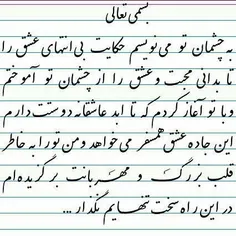 بسمی تعالی
به چشمان تو می نویسم حکایت بی انتهای عشق را
تا بدانی محبت و عشق را از چشمان تو آموختم
و با تو آغاز کردم که تا ابد عاشقانه دوستت دارم
این جاده عشق همسفر می خواهد و من تو را به خاطر
قلب بزرگ و مهربانت برگزیده ام
در این راه سخت تنهایم نگذار ...